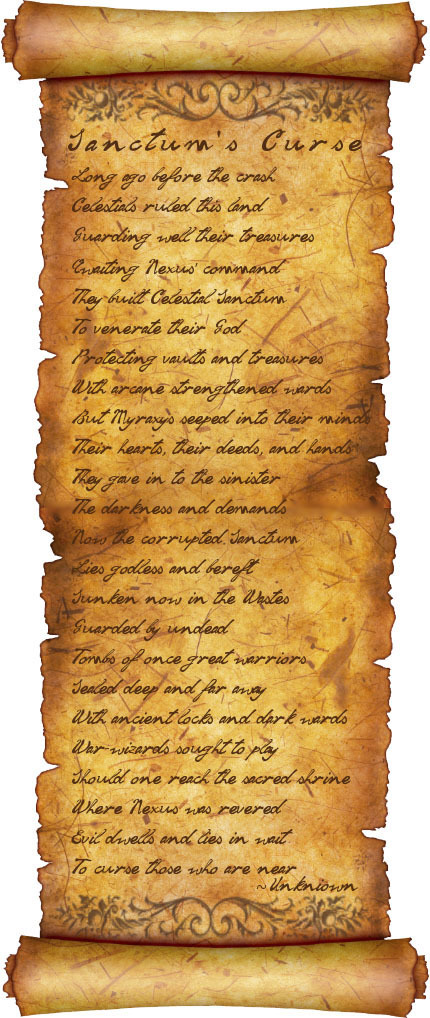 Sanctum's Curse
Long ago before the crash
Celestials ruled this land
Guarding well their treasures
Ewaiting Nexus' command
They built Celestial Sanctum
To venerate their God
Protecting vaults and treasures
With arcane strengthened wards
But Myraxys seeped into their minds
Their hearts, their deeds, and hands
They gave in to the sinister
The darkness and demands
Now the corrupted Sanctum
Lies godless and bereft
Sunken now in the Wastes
Guarded by undead
Tombs of once great warriors
Sealed deep and far away
With ancient locks and dark wards
War-wizards sought to play
Should one reach the sacred shrine
Where Nexus was revered
Evil dwells and lies in wait
To curse those who are near
~Unkniown